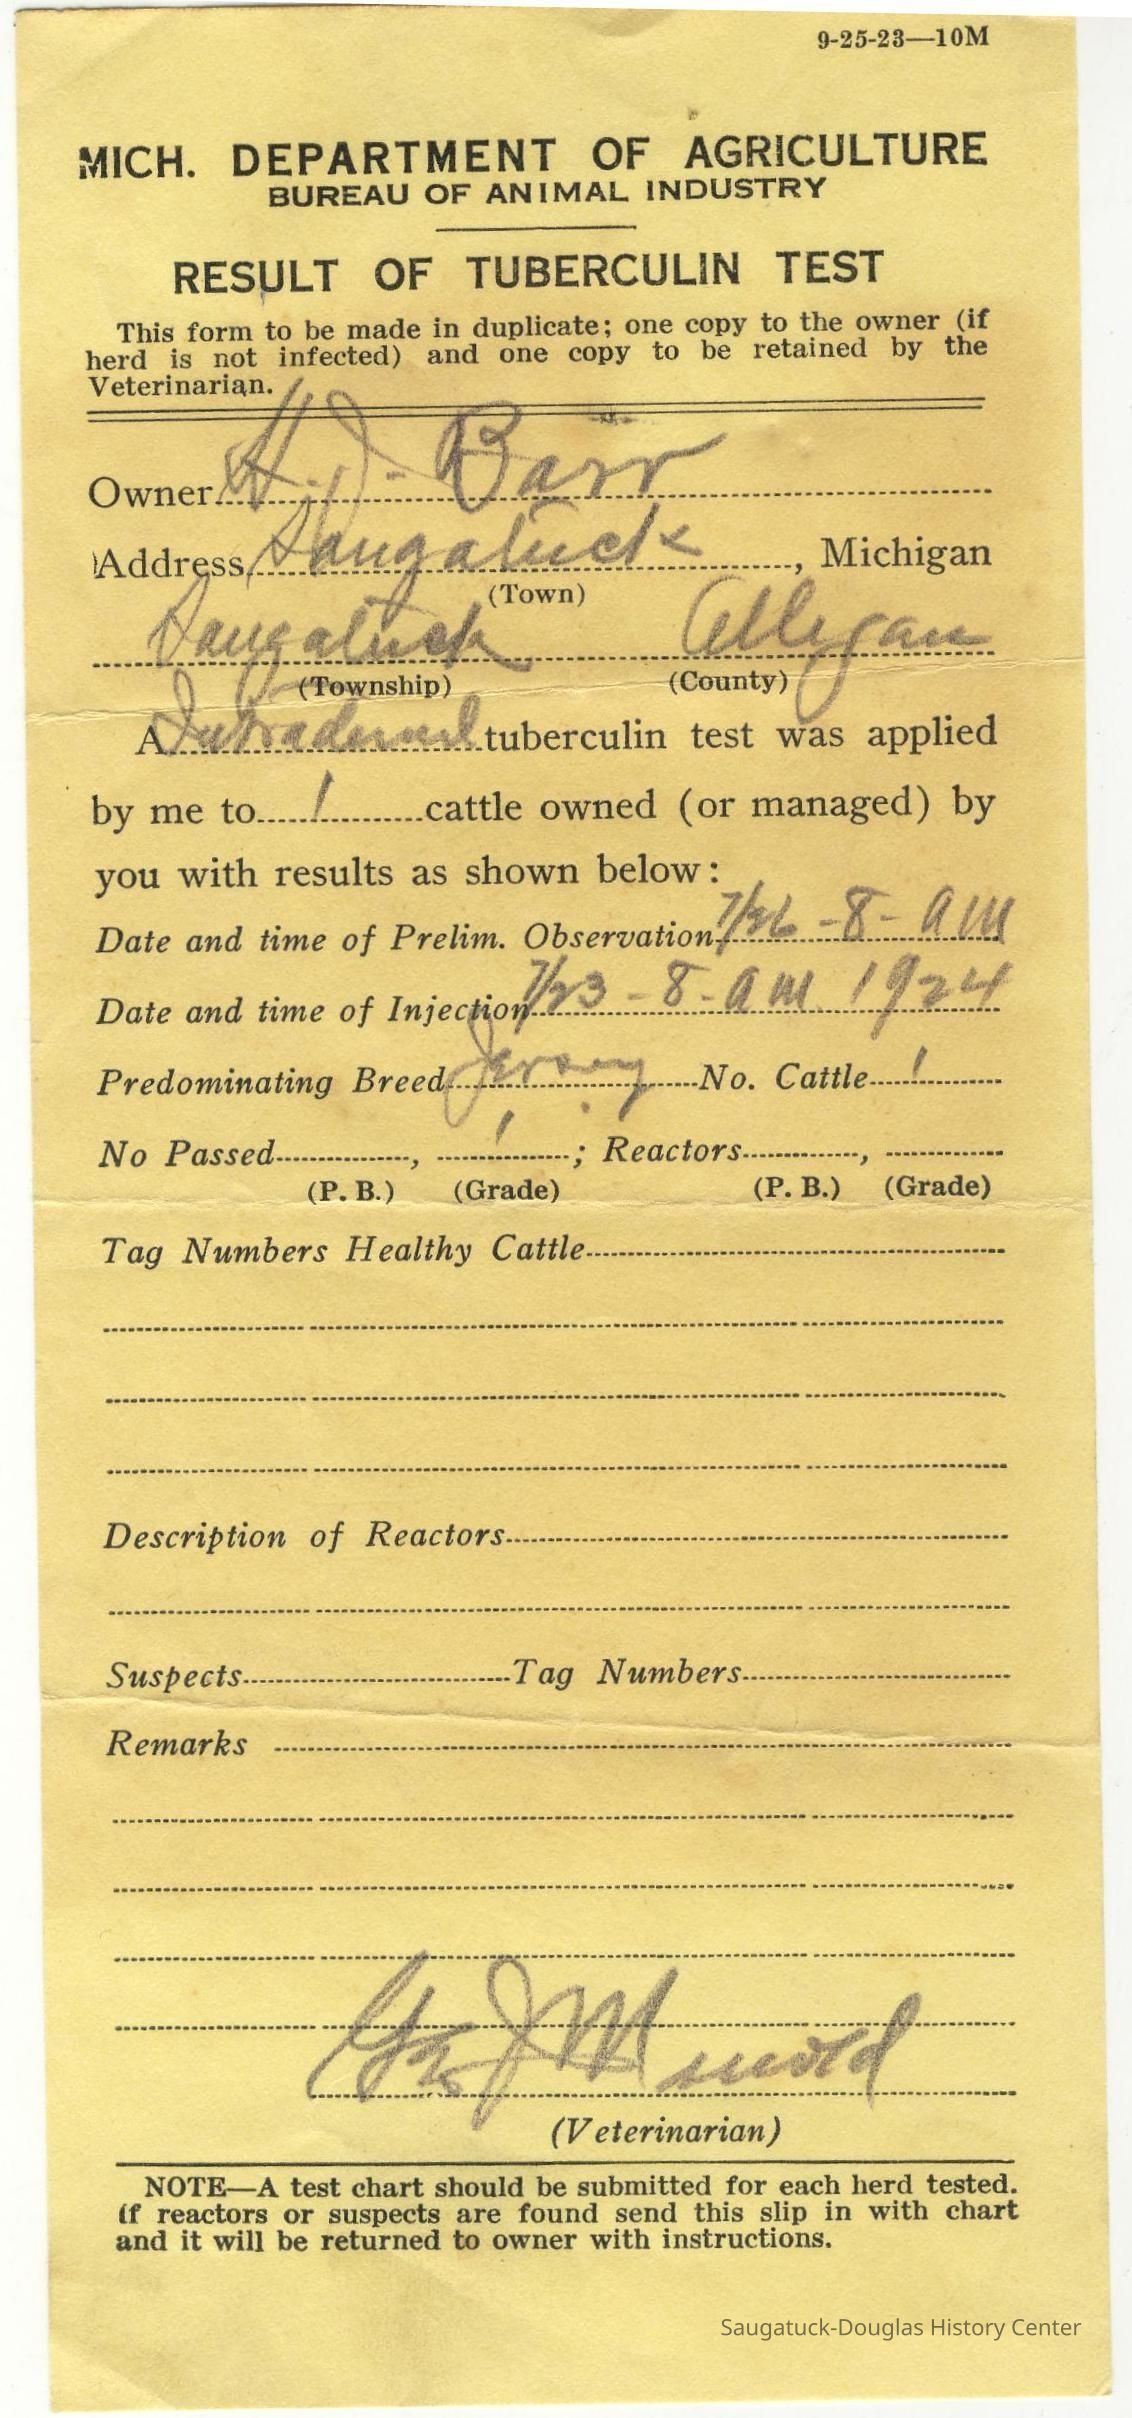 9-25-23—10M
MICH. DEPARTMENT OF AGRICULTURE
BUREAU OF ANIMAL INDUSTRY
RESULT OF TUBERCULIN TEST
This form to be made in duplicate; one copy to the owner (if
herd is not infected) and one copy to be retained by the
Veterinarian.
Owner H. J. Barr
Address Saugatuck, Michigan
(Town)
Saugatuck Allegan
(Township) (County)
A Intradermal tuberculin test was applied
by me to 1 cattle owned (or managed) by
you with results as shown below:
Date and time of Prelim. Observation 7/26 - 8 - AM
Date and time of Injection 7/23 - 8 - AM 1924
Predominating Breed Jersey No. Cattle 1
No Passed , 1 ; Reactors ,
(P. B.) (Grade) (P. B.) (Grade)
Tag Numbers Healthy Cattle
Description of Reactors
Suspects Tag Numbers
Remarks
Geo J
(Veterinarian)
NOTE—A test chart should be submitted for each herd tested.
If reactors or suspects are found send this slip in with chart
and it will be returned to owner with instructions.
Saugatuck-Douglas History Center